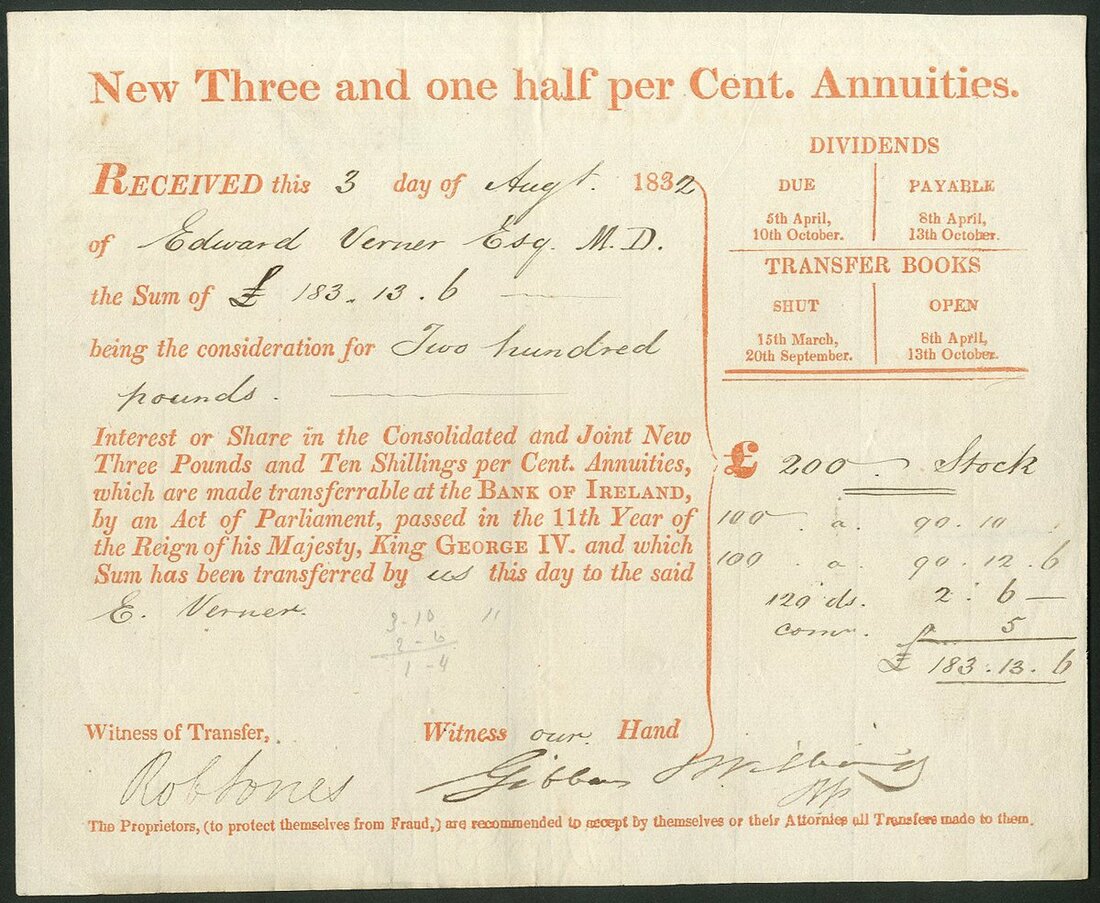 New Three and one half per Cent. Annuities.
RECEIVED this 3 day of Augt. 1832
of Edward Verner Esq. M.D.
the Sum of £ 183.13.6
being the consideration for Two hundred
pounds.
Interest or Share in the Consolidated and Joint New
Three Pounds and Ten Shillings per Cent. Annuities,
which are made transferrable at the BANK OF IRELAND,
by an Act of Parliament, passed in the 11th Year of
the Reign of his Majesty, King GEORGE IV. and which
Sum has been transferred by us this day to the said
E. Verner.
2-6
1-4
Witness of Transfer,
Rob Jones
Witness our Hand
Gibbons
DIVIDENDS
DUE PAYABLE
5th April, 8th April,
10th October. 13th October.
TRANSFER BOOKS
SHUT OPEN
15th March, 8th April,
20th September. 13th October.
£ 200 Stock
100 a. 90.10
100 a. 90.12.6
129 ds. 2:6
comn. 5
£ 183.13.6
The Proprietors, (to protect themselves from Fraud,) are recommended to accept by themselves or their Attornies all Transfers made to them.